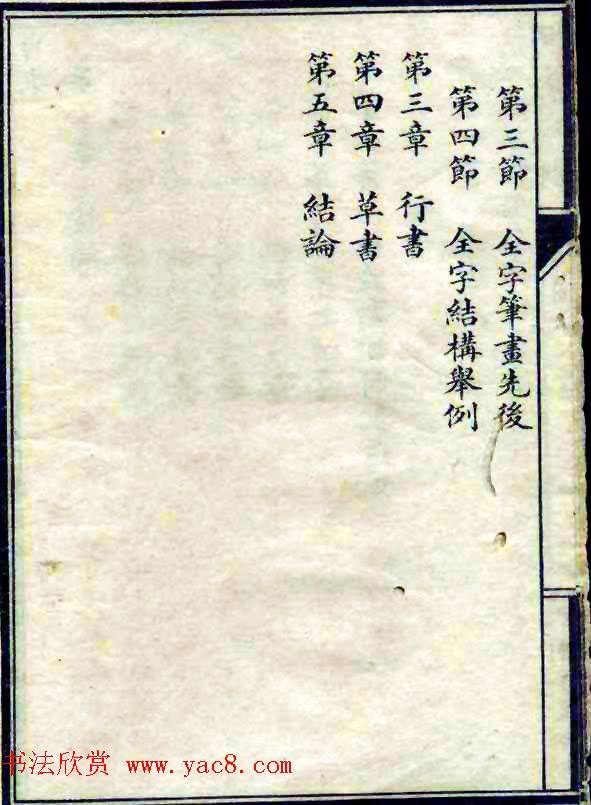 第三節 全字筆畫先後
第四節 全字結構舉例
第三章 行書
第四章 草書
第五章 結論
书法欣赏 www.yac8.com